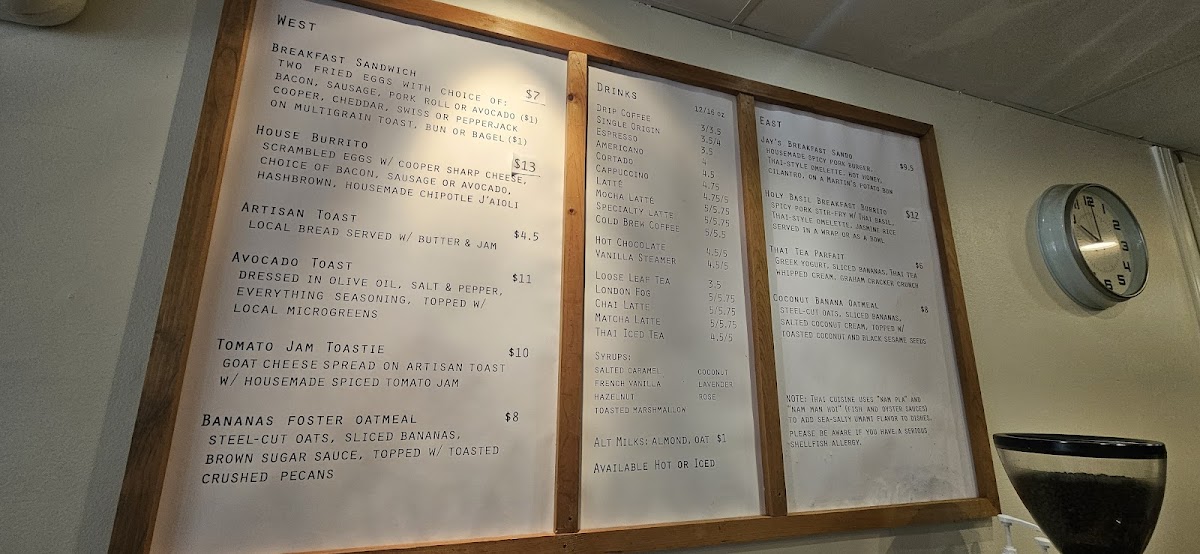 WEST
BREAKFAST SANDWICH $7
TWO FRIED EGGS WITH CHOICE OF:
BACON, SAUSAGE, PORK ROLL OR AVOCADO ($1)
COOPER, CHEDDAR, SWISS OR PEPPERJACK
ON MULTIGRAIN TOAST, BUN OR BAGEL ($1)
HOUSE BURRITO $13
SCRAMBLED EGGS W/ COOPER SHARP CHEESE,
CHOICE OF BACON, SAUSAGE OR AVOCADO,
HASHBROWN, HOUSEMADE CHIPOTLE J'AIOLI
ARTISAN TOAST $4.5
LOCAL BREAD SERVED W/ BUTTER & JAM
AVOCADO TOAST $11
DRESSED IN OLIVE OIL, SALT & PEPPER,
EVERYTHING SEASONING, TOPPED W/
LOCAL MICROGREENS
TOMATO JAM TOASTIE $10
GOAT CHEESE SPREAD ON ARTISAN TOAST
W/ HOUSEMADE SPICED TOMATO JAM
BANANAS FOSTER OATMEAL $8
STEEL-CUT OATS, SLICED BANANAS,
BROWN SUGAR SAUCE, TOPPED W/ TOASTED
CRUSHED PECANS
DRINKS 12/16 OZ
DRIP COFFEE 3/3.5
SINGLE ORIGIN 3.5/4
ESPRESSO 3.5
AMERICANO 4
CORTADO 4.5
CAPPUCCINO 4.75
LATTÉ 4.75/5
MOCHA LATTÉ 5/5.75
SPECIALTY LATTE 5/5.75
COLD BREW COFFEE 5/5.5
HOT CHOCOLATE 4.5/5
VANILLA STEAMER 4.5/5
LOOSE LEAF TEA 3.5
LONDON FOG 5/5.75
CHAI LATTE 5/5.75
MATCHA LATTE 5/5.75
THAI ICED TEA 4.5/5
SYRUPS:
SALTED CARAMEL COCONUT
FRENCH VANILLA LAVENDER
HAZELNUT ROSE
TOASTED MARSHMALLOW
ALT MILKS: ALMOND, OAT $1
AVAILABLE HOT OR ICED
EAST
JAY'S BREAKFAST SANDO $9.5
HOUSEMADE SPICY PORK BURGER,
THAI-STYLE OMELETTE, HOT HONEY,
CILANTRO, ON A MARTIN'S POTATO BUN
HOLY BASIL BREAKFAST BURRITO $12
SPICY PORK STIR-FRY W/ THAI BASIL,
THAI-STYLE OMELETTE, JASMINE RICE
SERVED IN A WRAP OR AS A BOWL
THAI TEA PARFAIT $6
GREEK YOGURT, SLICED BANANAS, THAI TEA
WHIPPED CREAM, GRAHAM CRACKER CRUNCH
COCONUT BANANA OATMEAL $8
STEEL-CUT OATS, SLICED BANANAS,
SALTED COCONUT CREAM, TOPPED W/
TOASTED COCONUT AND BLACK SESAME SEEDS
NOTE: THAI CUISINE USES "NAM PLA" AND
"NAM MAN HOI" (FISH AND OYSTER SAUCES)
TO ADD SEA-SALTY UMAMI FLAVOR TO DISHES.
PLEASE BE AWARE IF YOU HAVE A SERIOUS
SHELLFISH ALLERGY.